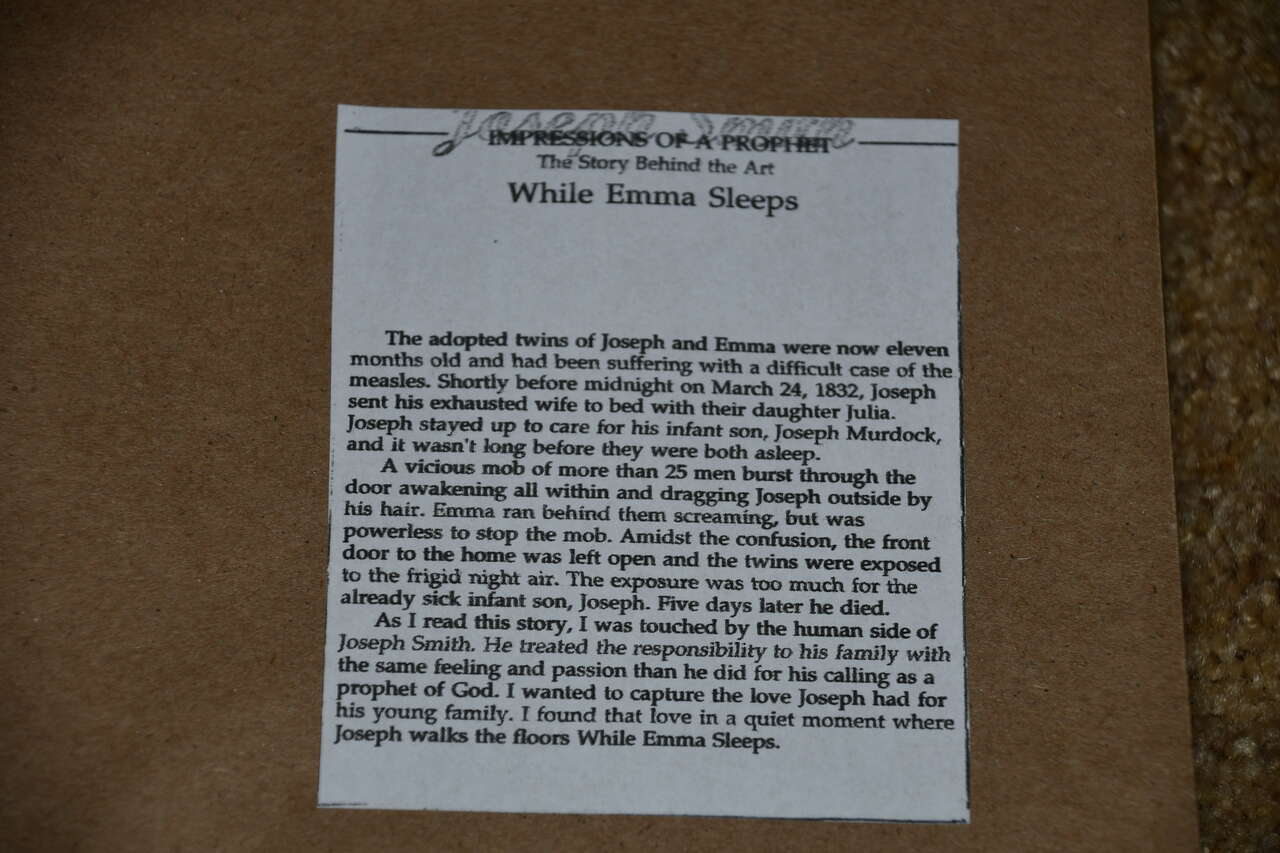 Joseph Smith
IMPRESSIONS OF A PROPHET
The Story Behind the Art
While Emma Sleeps
The adopted twins of Joseph and Emma were now eleven
months old and had been suffering with a difficult case of the
measles. Shortly before midnight on March 24, 1832, Joseph
sent his exhausted wife to bed with their daughter Julia.
Joseph stayed up to care for his infant son, Joseph Murdock,
and it wasn't long before they were both asleep.
A vicious mob of more than 25 men burst through the
door awakening all within and dragging Joseph outside by
his hair. Emma ran behind them screaming, but was
powerless to stop the mob. Amidst the confusion, the front
door to the home was left open and the twins were exposed
to the frigid night air. The exposure was too much for the
already sick infant son, Joseph. Five days later he died.
As I read this story, I was touched by the human side of
Joseph Smith. He treated the responsibility to his family with
the same feeling and passion than he did for his calling as a
prophet of God. I wanted to capture the love Joseph had for
his young family. I found that love in a quiet moment where
Joseph walks the floors While Emma Sleeps.